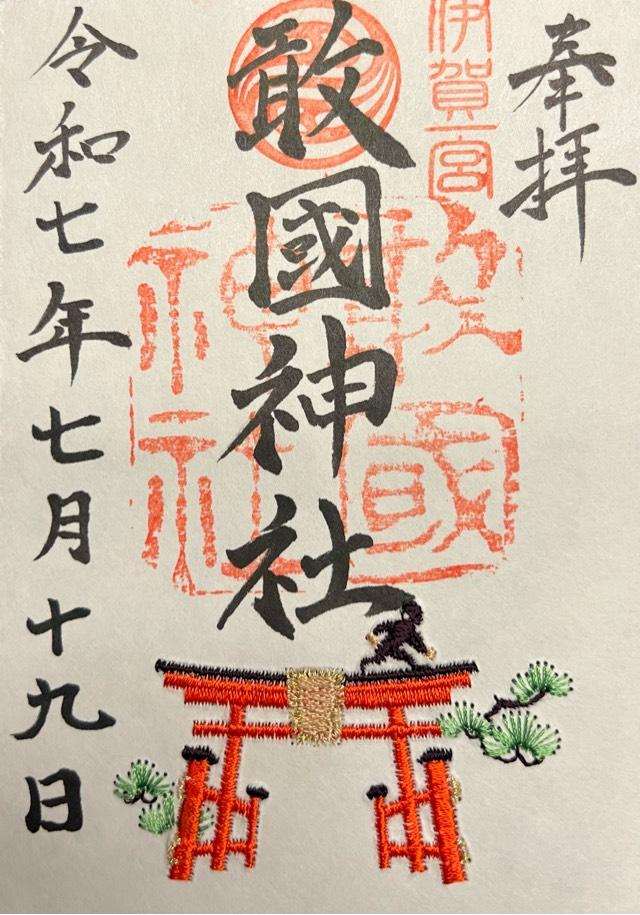 奉拝
伊賀一宮
敢國神社
敢國
神社
令和七年七月十九日